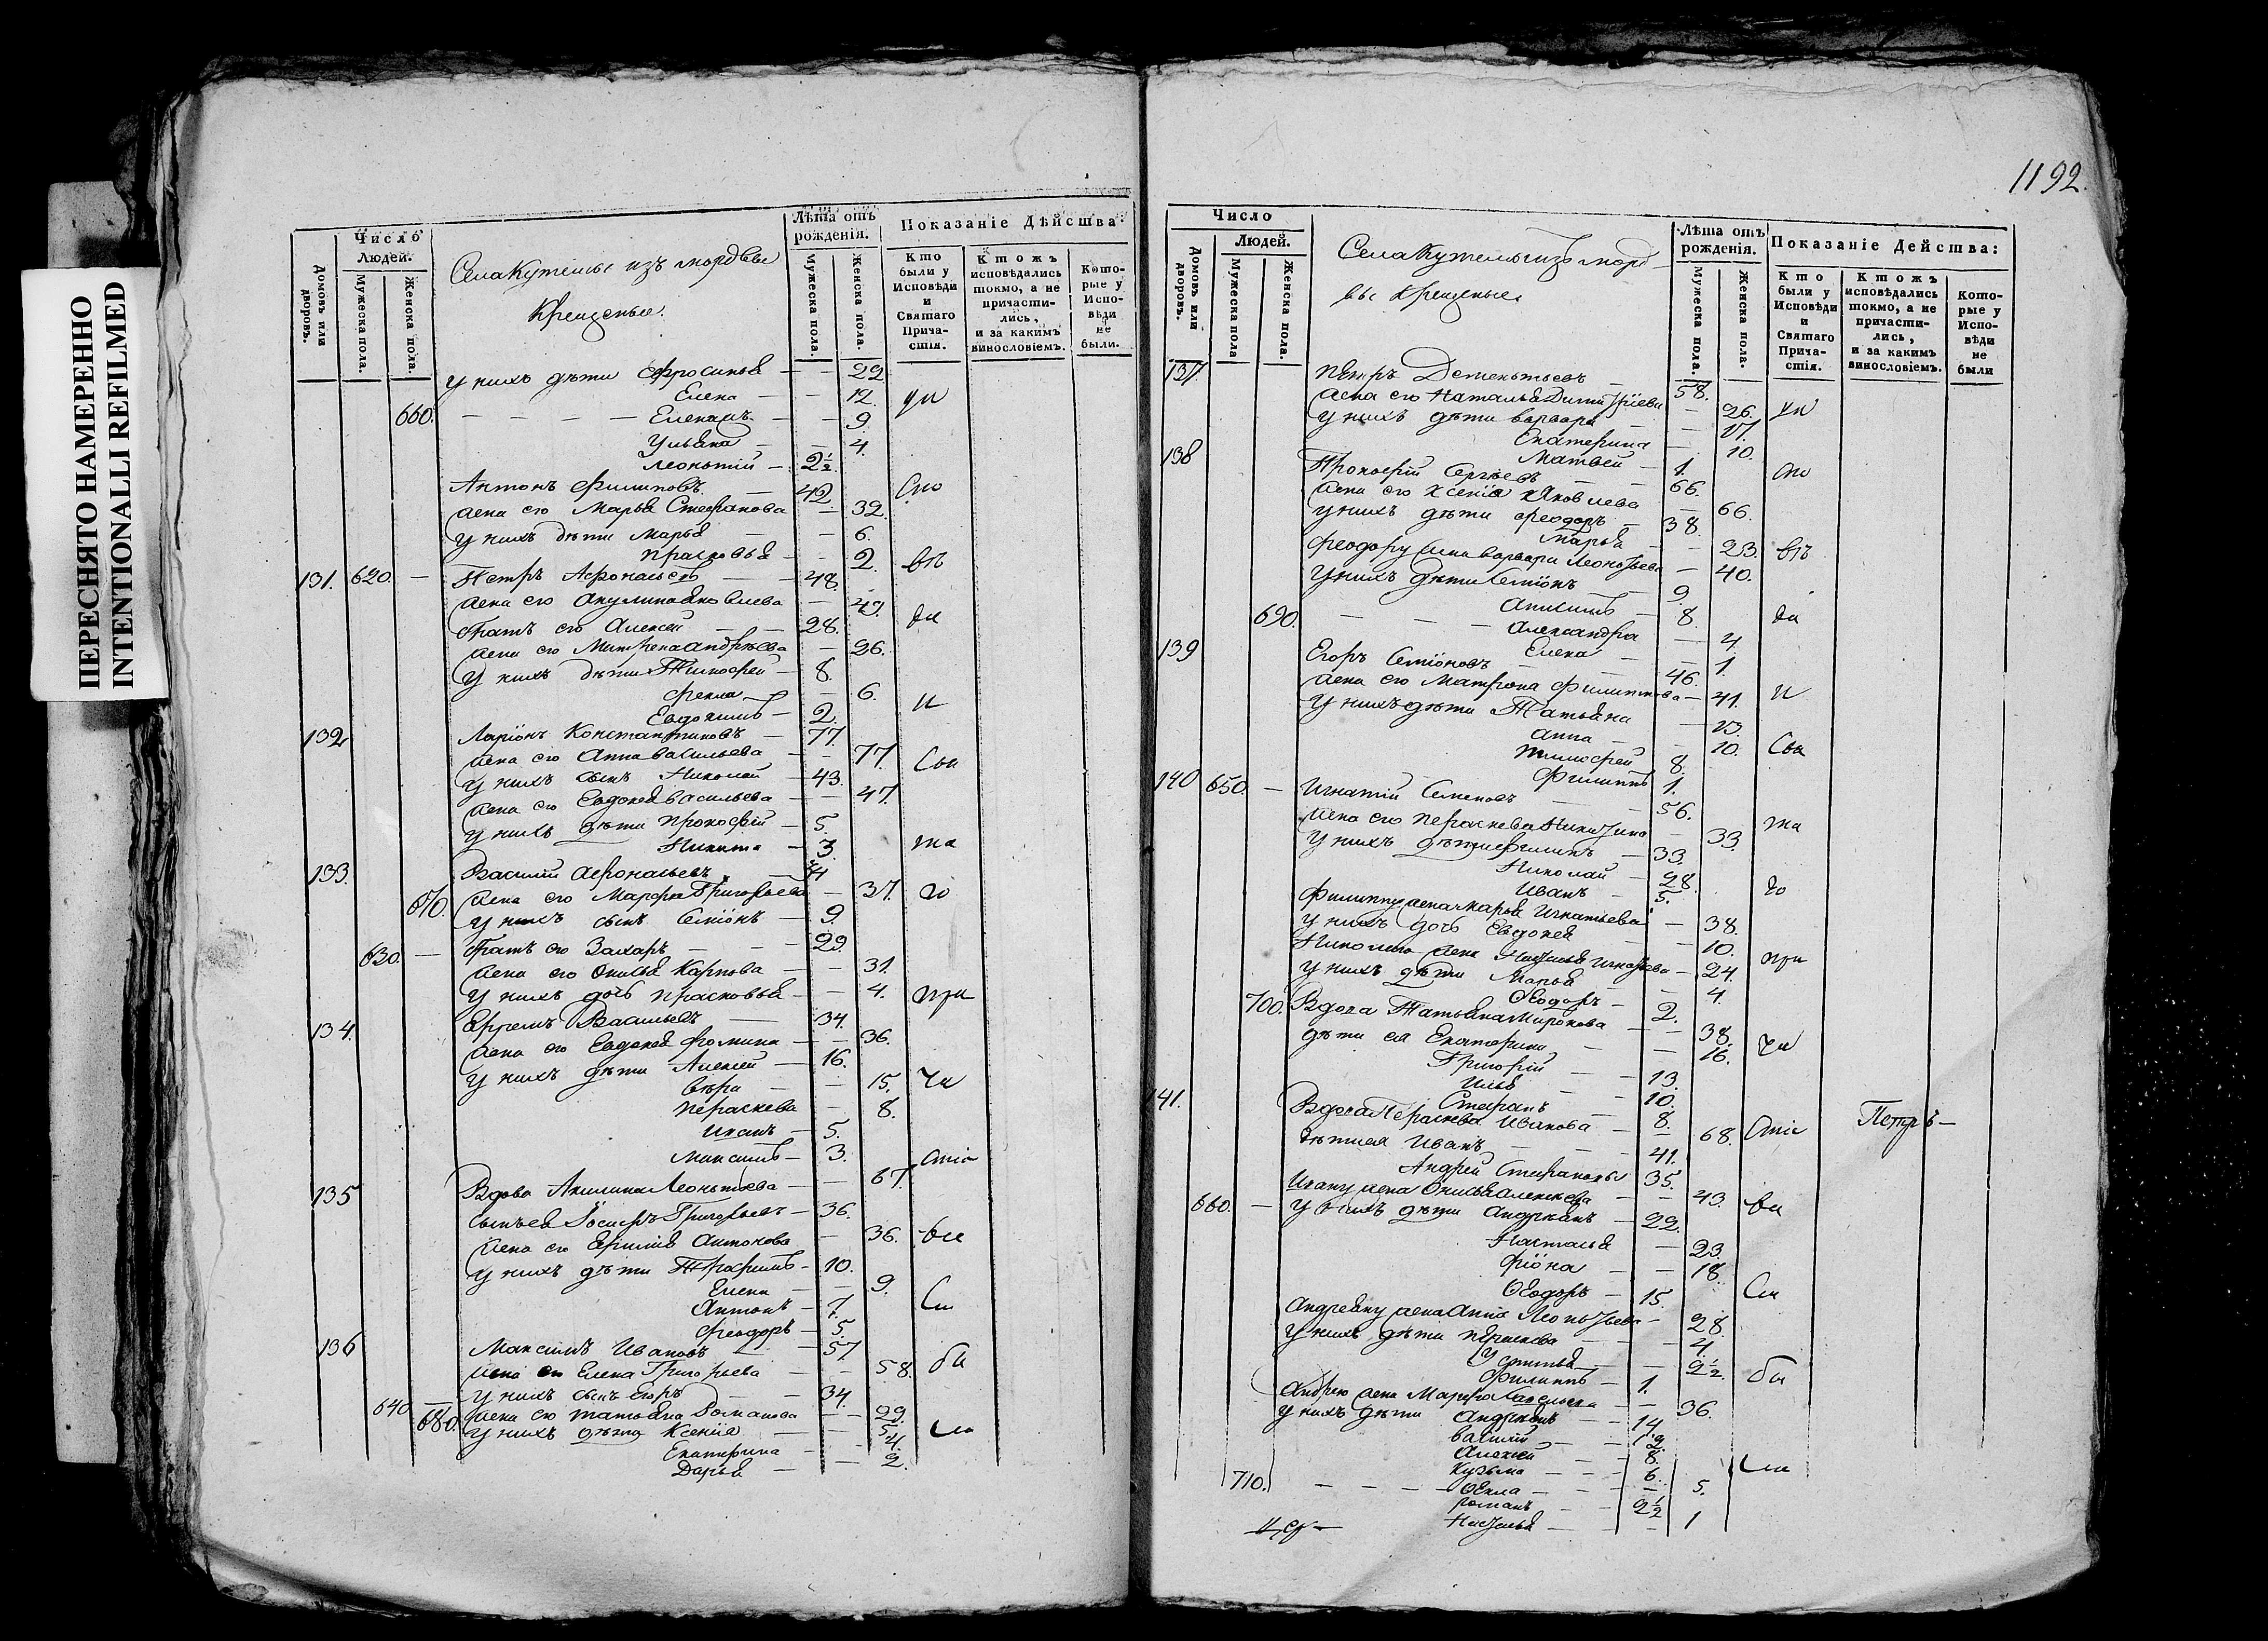 ПЕРЕСНЯТО НАМЕРЕННО
INTENTIONALLI REFILMED
Число
Людей.
Домовъ или дворовъ.
Мужеска пола.
Женска пола.
Села Кутемы изъ мордвы
Крещеные.
Лѣта отъ рожденія.
Мужеска пола.
Женска пола.
Показаніе Дѣйства:
Кто были у Исповѣди и Святаго Причастія.
Ктожъ исповѣдались токмо, а не причастились, и за какимъ винословіемъ.
Которые у Исповѣди не были.
у нихъ дѣти Ефросинья — — 22
Елена — — 12.
660. — — — — Елена — 9.
Ульяна — — 4.
Леонтій — 2½
Антонъ Филиповъ — 42.
жена его Марья Стефанова — 32.
у нихъ дѣти Марья — — 6.
Прасковья — — 2.
131. 620. — Петръ Афонасьевъ — 48.
жена его Акулина Яковлева — 49.
братъ его Алексей — — 28.
жена его Матрена Андрѣева — 26.
у нихъ дѣти Тимофей — 8.
Фекла — — 6.
Евдокимъ — 2.
132 Ларіонъ Константиновъ — 77.
жена его Анна Васильева — 77.
у нихъ сынъ Николай — 43.
жена его Евдокея Васильева — 47.
у нихъ дѣти Прокофій — 5.
Никита — 3.
133. Василій Афонасьевъ — 34
670. жена его Марфа Григорьева — 37.
у нихъ сынъ Семіонъ — 9.
630. — братъ его Захаръ — — 29.
жена его Онисья Карпова — — 31.
у нихъ дочь Прасковья — — 4.
134. Ефремъ Васильевъ — 34.
жена его Евдокея Фомина — — 36.
у нихъ дѣти Алексей — 16.
Вѣра — — 15.
Параскева — 8.
Иванъ — 5.
Максимъ — 3.
135 Вдова Акилина Леонтьева — — 67.
сынъ ея Григорьевъ — 36.
жена его Антонова — 36.
у нихъ дѣти Трофимъ — 10.
Елена — 9.
Антонъ — 7.
Феодоръ — 5.
136 Максимъ Ивановъ — 57.
жена его Елена Григорьева — — 58.
у нихъ сынъ Егоръ — — 34.
640 жена его Татьяна Романова — — 29.
680. у нихъ дѣти Ксенія — — 5.
Екатерина — — 4.
Дарья — — 2.
1192.
Число
Людей.
Домовъ или дворовъ.
Мужеска пола
Женска пола.
Села Кутемы изъ морд-
вы крещеные.
Лѣта отъ рожденія.
Мужеска пола.
Женска пола.
Показаніе Дейсвва:
Кто были у Исповѣди и Святаго Причастія.
Ктожъ исповѣдались токмо, а не причастились, и за какимъ винословіемъ.
Которые у Исповѣди не были
137. Петръ Дементьевъ — 58.
жена его Наталья Димитріева — 26.
у нихъ дѣти Варвара — — 17.
Екатерина — 10.
Матвей — 1.
138 Прокофій Сергѣевъ — 66.
жена его Ксенія Яковлева — 66.
у нихъ дѣти Феодоръ — 38.
Марья — — 23.
Феодору жена Варвара Леонтьева — 40.
у нихъ дѣти Семіонъ — 9.
690. — — — Анисимъ — 8.
Александра — 4.
Елена — — 1.
139 Егоръ Семіоновъ — 46.
жена его Матрона Филиппова — 41.
у нихъ дѣти Татьяна — 13.
Анна — — 10.
Тимофей — 8.
Филиппъ 1.
140 650. — Игнатій Семеновъ — 56.
жена его Параскева Никитина — 33.
у нихъ дѣти Филипъ — 33.
Николай — 28.
Иванъ — 5.
Филиппу жена Марья Игнатьева — 38.
у нихъ дочь Евдокея — 10.
Николаю жена Наталья Игнатьева — 24.
у нихъ дѣти Марья — — 4.
Ѳеодоръ — 2.
700. Вдова Татьяна Миронова — — 38.
дѣти ея Екатерина — — 16.
Григорій — — 13.
Илья — — 10.
Стефанъ — 8.
141. Вдова Параскева Иванова — — 68. Петръ —
дѣти ея Иванъ — — 41.
Андрей Стефановы 35.
Ивану жена Онисья Алексеева — — 43.
660. — у нихъ дѣти Андреянъ — 22.
Наталья — 23.
Фіона — — 18.
Ѳеодоръ — 15.
Андреяну жена Анна Леонтьева — 28.
у нихъ дѣти Параскева — — 4.
Устинья — — 2½
Филиппъ — 1.
Андрею жена Марфа Савельева — — 36.
у нихъ дѣти Андреянъ — 14.
Василій — — 12.
Алексей — — 8.
Кузьма — — — 6.
710. — — — — Ѳекла — — — 5.
Романъ — — 2½
Наталья — — — 1